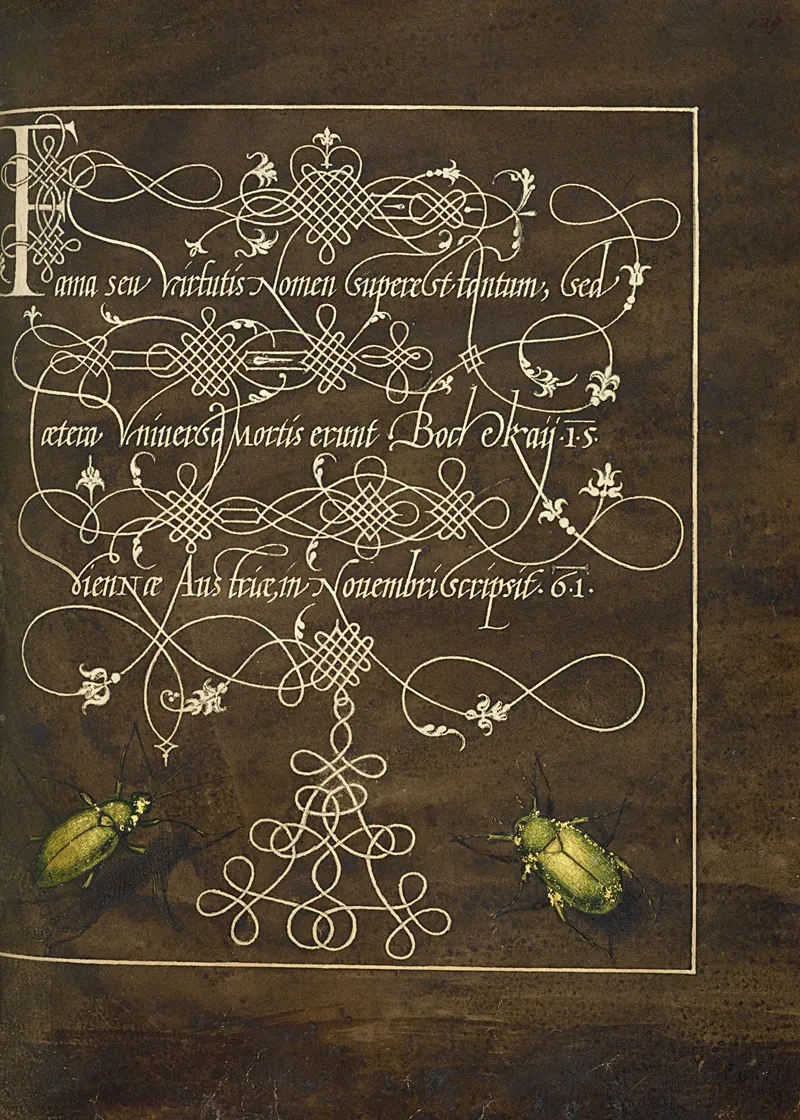 Fama seu Virtutis Nomen Superest tantum, Sed
cætera Vniuersa Mortis erunt. Bochkaij. 15
Viennæ Austriæ, in Nouembri scripsit. 61.